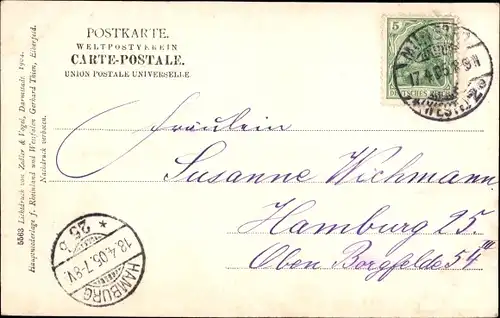 POSTKARTE.
WELTPOSTVEREIN
CARTE-POSTALE.
UNION POSTALE UNIVERSELLE.
5
DEUTSCHES REICH
17.4.05
(WESTF.)
Fräulein
Susanne Wichmann
Hamburg 25.
Oben Borgfelde 54
5563 Lichtdruck von Zedler & Vogel, Darmstadt 1904.
Hauptniederlage f. Rheinland und Westfalen Gerhard Thien, Elberfeld.
Nachdruck verboten.
HAMBURG
18.4.05.7-8V.
* 25 b